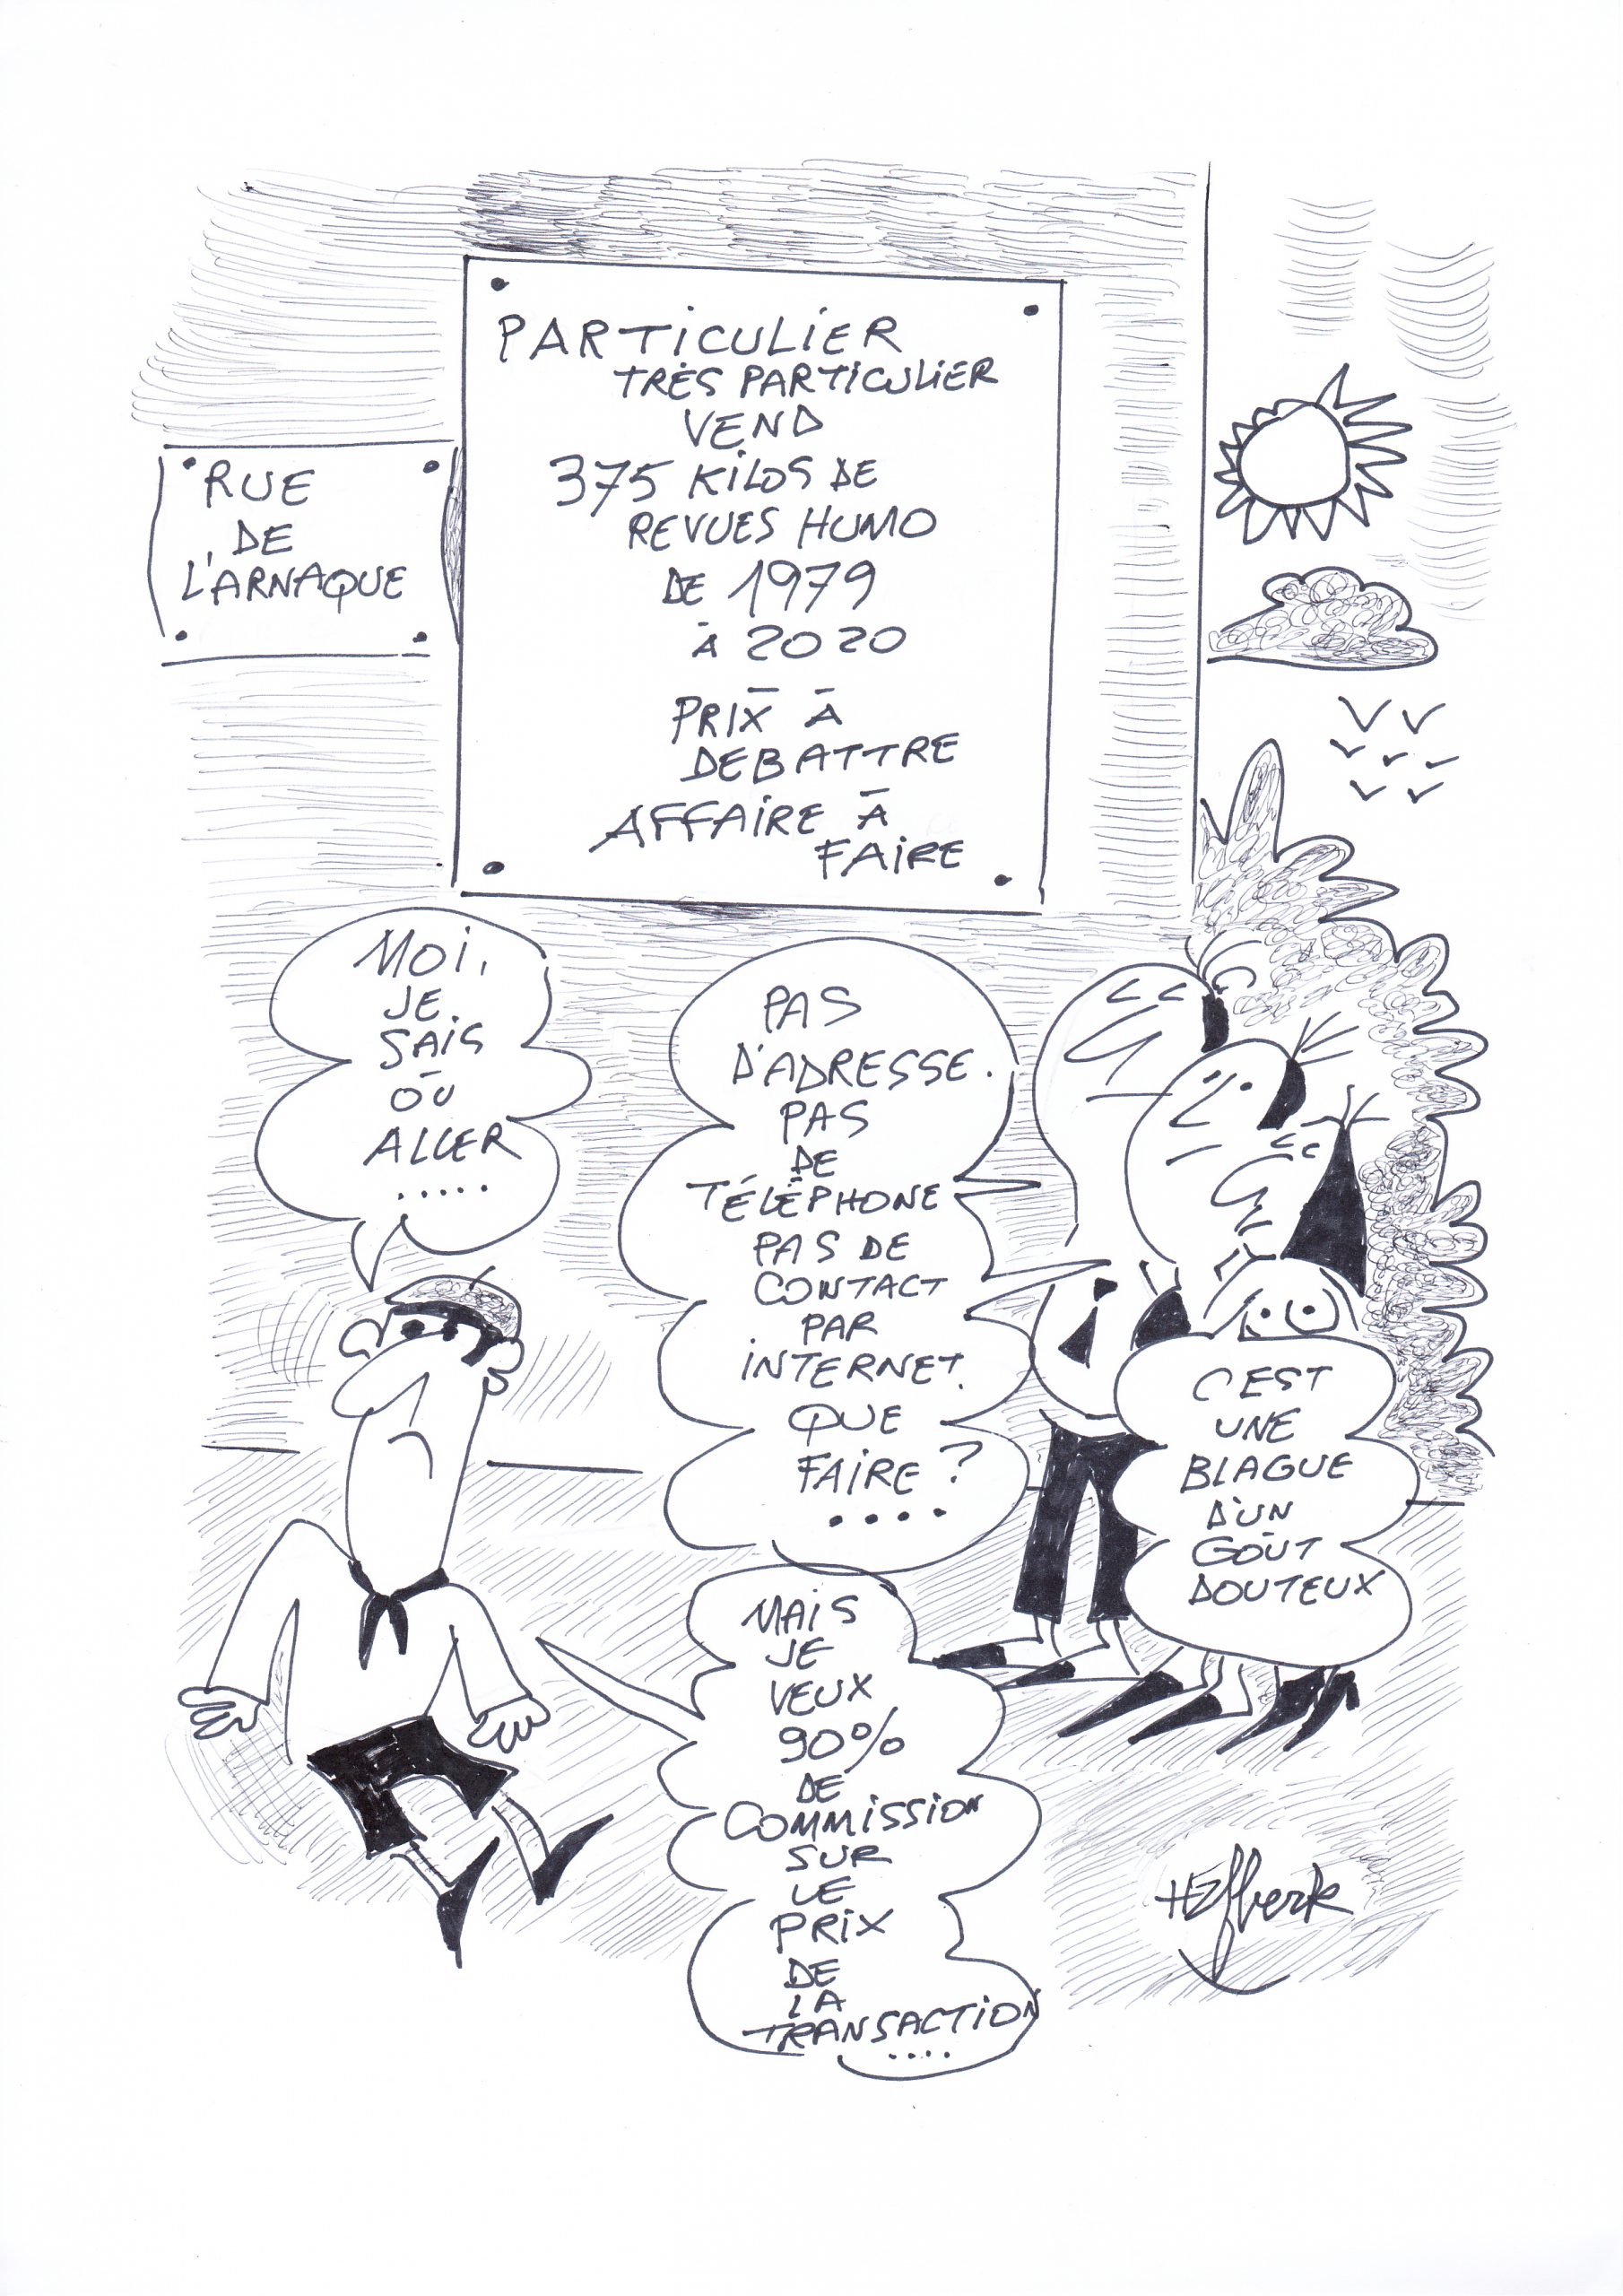 PARTICULIER
TRÈS PARTICULIER
VEND
375 KILOS DE
REVUES HUMO
DE 1979
À 2020
PRIX À
DEBATTRE
AFFAIRE À
FAIRE
RUE
DE
L'ARNAQUE
MOI,
JE
SAIS
OÙ
ALLER
.....
PAS
D'ADRESSE.
PAS
DE
TÉLÉPHONE
PAS DE
CONTACT
PAR
INTERNET.
QUE
FAIRE ?
....
C'EST
UNE
BLAGUE
D'UN
GOÛT
DOUTEUX
MAIS
JE
VEUX
90%
DE
COMMISSION
SUR
LE
PRIX
DE
LA
TRANSACTION
....